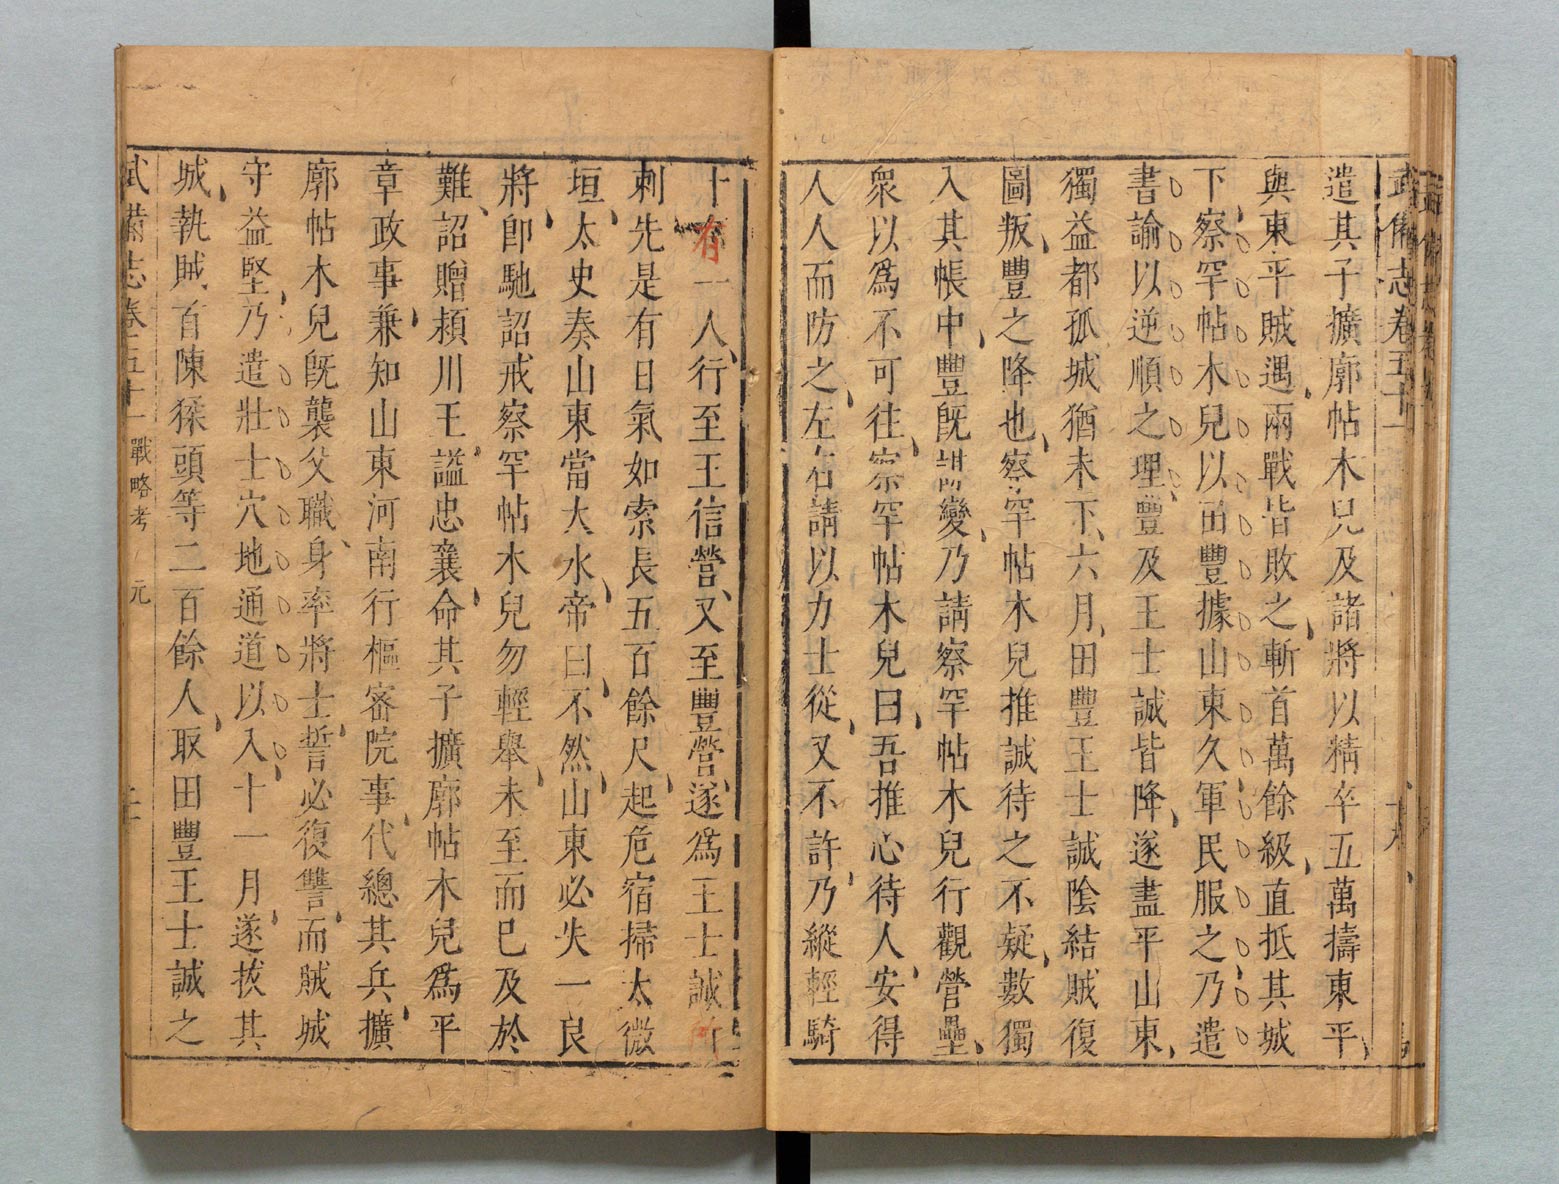 武備志卷五十一
十九
遣其子擴廓帖木兒及諸將以精卒五萬擣東平
與東平賊遇兩戰皆敗之斬首萬餘級直抵其城
下察罕帖木兒以田豐據山東久軍民服之乃遣
書諭以逆順之理豐及王士誠皆降遂盡平山東
獨益都孤城猶未下六月田豐王士誠陰結賊復
圖叛豐之降也察罕帖木兒推誠待之不疑數獨
入其帳中豐旣謀變乃請察罕帖木兒行觀營壘
衆以爲不可往察罕帖木兒曰吾推心待人安得
人人而防之左右請以力士從又不許乃縱輕騎
十有一人行至王信營又至豐營遂爲王士誠所
刺先是有日氣如索長五百餘尺起危宿掃太微
垣太史奏山東當大水帝曰不然山東必失一良
將卽馳詔戒察罕帖木兒勿輕舉未至而已及於
難詔贈潁川王謚忠襄命其子擴廓帖木兒爲平
章政事兼知山東河南行樞密院事代總其兵擴
廓帖木兒旣襲父職身率將士誓必復讐而賊城
守益堅乃遣壯士穴地通道以入十一月遂拔其
城執賊首陳猱頭等二百餘人取田豐王士誠之
武備志卷五十一 戰略考 元